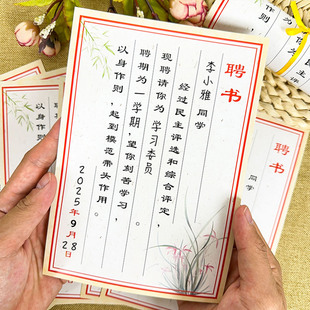 聘书
李小雅 同学
经过民主评选和综合评定,
现聘请你为 学习委员
聘期为 一学期,望你刻苦学习,
以身作则,起到模范带头作用。
2025年9月28日
聘书
同学
以身作则